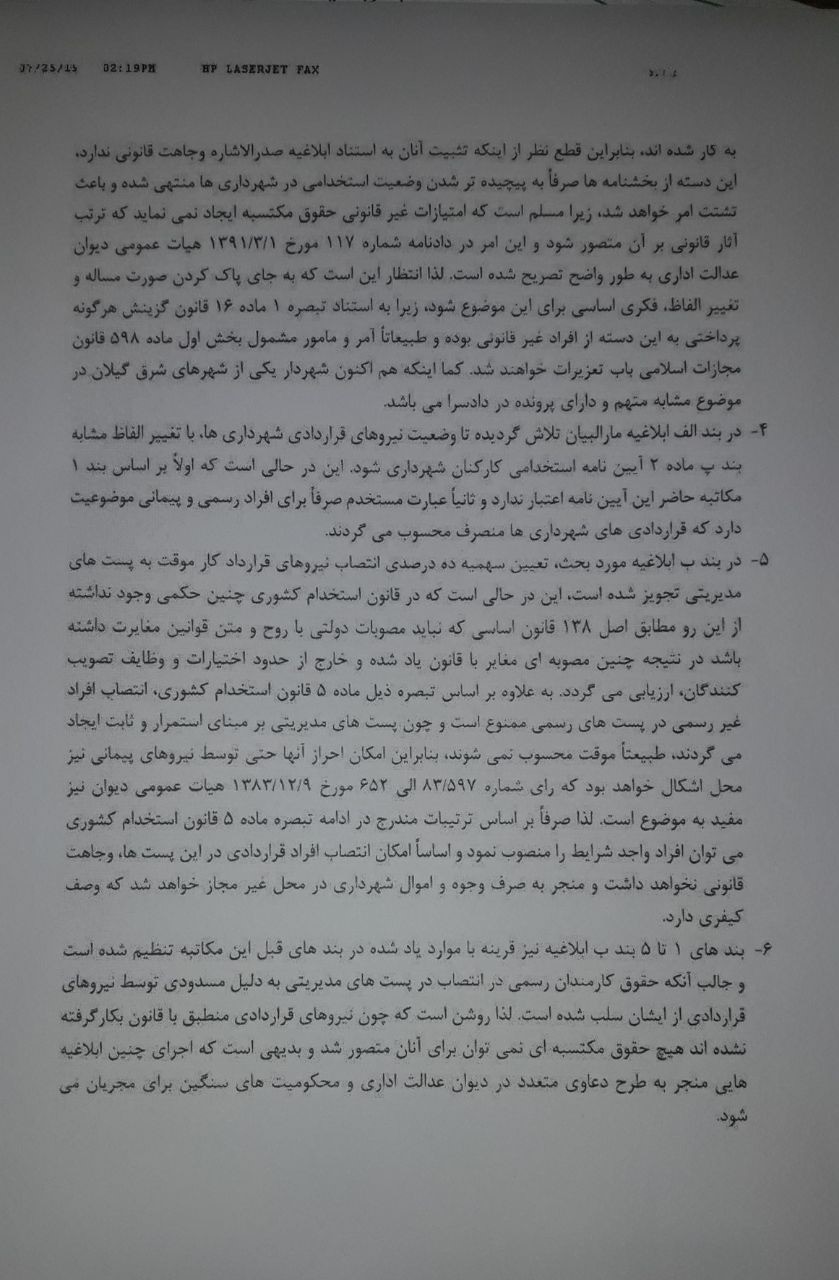 02:19PM HP LASERJET FAX
به کار شده اند، بنابراین قطع نظر از اینکه تثبیت آنان به استناد ابلاغیه صدرالاشاره وجاهت قانونی ندارد،
این دسته از بخشنامه ها صرفاً به پیچیده تر شدن وضعیت استخدامی در شهرداری ها منتهی شده و باعث
تشتت امر خواهد شد، زیرا مسلم است که امتیازات غیر قانونی حقوق مکتسبه ایجاد نمی نماید که ترتب
آثار قانونی بر آن متصور شود و این امر در دادنامه شماره ۱۱۷ مورخ ۱۳۹۱/۳/۱ هیات عمومی دیوان
عدالت اداری به طور واضح تصریح شده است. لذا انتظار این است که به جای پاک کردن صورت مساله و
تغییر الفاظ، فکری اساسی برای این موضوع شود، زیرا به استناد تبصره ۱ ماده ۱۶ قانون گزینش هرگونه
پرداختی به این دسته از افراد غیر قانونی بوده و طبیعاتاً آمر و مامور مشمول بخش اول ماده ۵۹۸ قانون
مجازات اسلامی باب تعزیرات خواهند شد. کما اینکه هم اکنون شهردار یکی از شهرهای شرق گیلان در
موضوع مشابه متهم و دارای پرونده در دادسرا می باشد.
۴- در بند الف ابلاغیه مارالبیان تلاش گردیده تا وضعیت نیروهای قراردادی شهرداری ها، با تغییر الفاظ مشابه
بند پ ماده ۲ آیین نامه استخدامی کارکنان شهرداری شود. این در حالی است که اولاً بر اساس بند ۱
مکاتبه حاضر این آیین نامه اعتبار ندارد و ثانیاً عبارت مستخدم صرفاً برای افراد رسمی و پیمانی موضوعیت
دارد که قراردادی های شهرداری ها منصرف محسوب می گردند.
۵- در بند ب ابلاغیه مورد بحث، تعیین سهمیه ده درصدی انتصاب نیروهای قرارداد کار موقت به پست های
مدیریتی تجویز شده است، این در حالی است که در قانون استخدام کشوری چنین حکمی وجود نداشته
از این رو مطابق اصل ۱۳۸ قانون اساسی که نباید مصوبات دولتی با روح و متن قوانین مغایرت داشته
باشد در نتیجه چنین مصوبه ای مغایر با قانون یاد شده و خارج از حدود اختیارات و وظایف تصویب
کنندگان، ارزیابی می گردد. به علاوه بر اساس تبصره ذیل ماده ۵ قانون استخدام کشوری، انتصاب افراد
غیر رسمی در پست های رسمی ممنوع است و چون پست های مدیریتی بر مبنای استمرار و ثابت ایجاد
می گردند، طبیعتاً موقت محسوب نمی شوند، بنابراین امکان احراز آنها حتی توسط نیروهای پیمانی نیز
محل اشکال خواهد بود که رای شماره ۸۳/۵۹۷ الی ۶۵۲ مورخ ۱۳۸۳/۱۲/۹ هیات عمومی دیوان نیز
مفید به موضوع است. لذا صرفاً بر اساس ترتیبات مندرج در ادامه تبصره ماده ۵ قانون استخدام کشوری
می توان افراد واجد شرایط را منصوب نمود و اساساً امکان انتصاب افراد قراردادی در این پست ها، وجاهت
قانونی نخواهد داشت و منجر به صرف وجوه و اموال شهرداری در محل غیر مجاز خواهد شد که وصف
کیفری دارد.
۶- بند های ۱ تا ۵ بند ب ابلاغیه نیز قرینه با موارد یاد شده در بند های قبل این مکاتبه تنظیم شده است
و جالب آنکه حقوق کارمندان رسمی در انتصاب در پست های مدیریتی به دلیل مسدودی توسط نیروهای
قراردادی از ایشان سلب شده است. لذا روشن است که چون نیروهای قراردادی منطبق با قانون بکارگرفته
نشده اند هیچ حقوق مکتسبه ای نمی توان برای آنان متصور شد و بدیهی است که اجرای چنین ابلاغیه
هایی منجر به طرح دعاوی متعدد در دیوان عدالت اداری و محکومیت های سنگین برای مجریان می
شود.